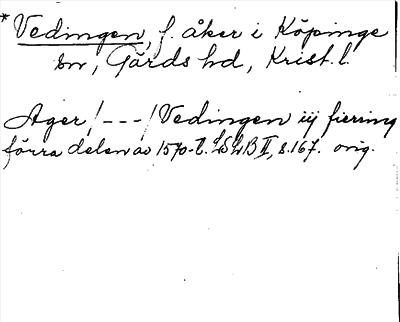 * Vedingen, f. åker i Köpinge
sn, Gärds hd, Krist. l.
Ager /---/ Vedingen iij fiering
förra delen av 1570-t. LSLB II, s. 167. orig.